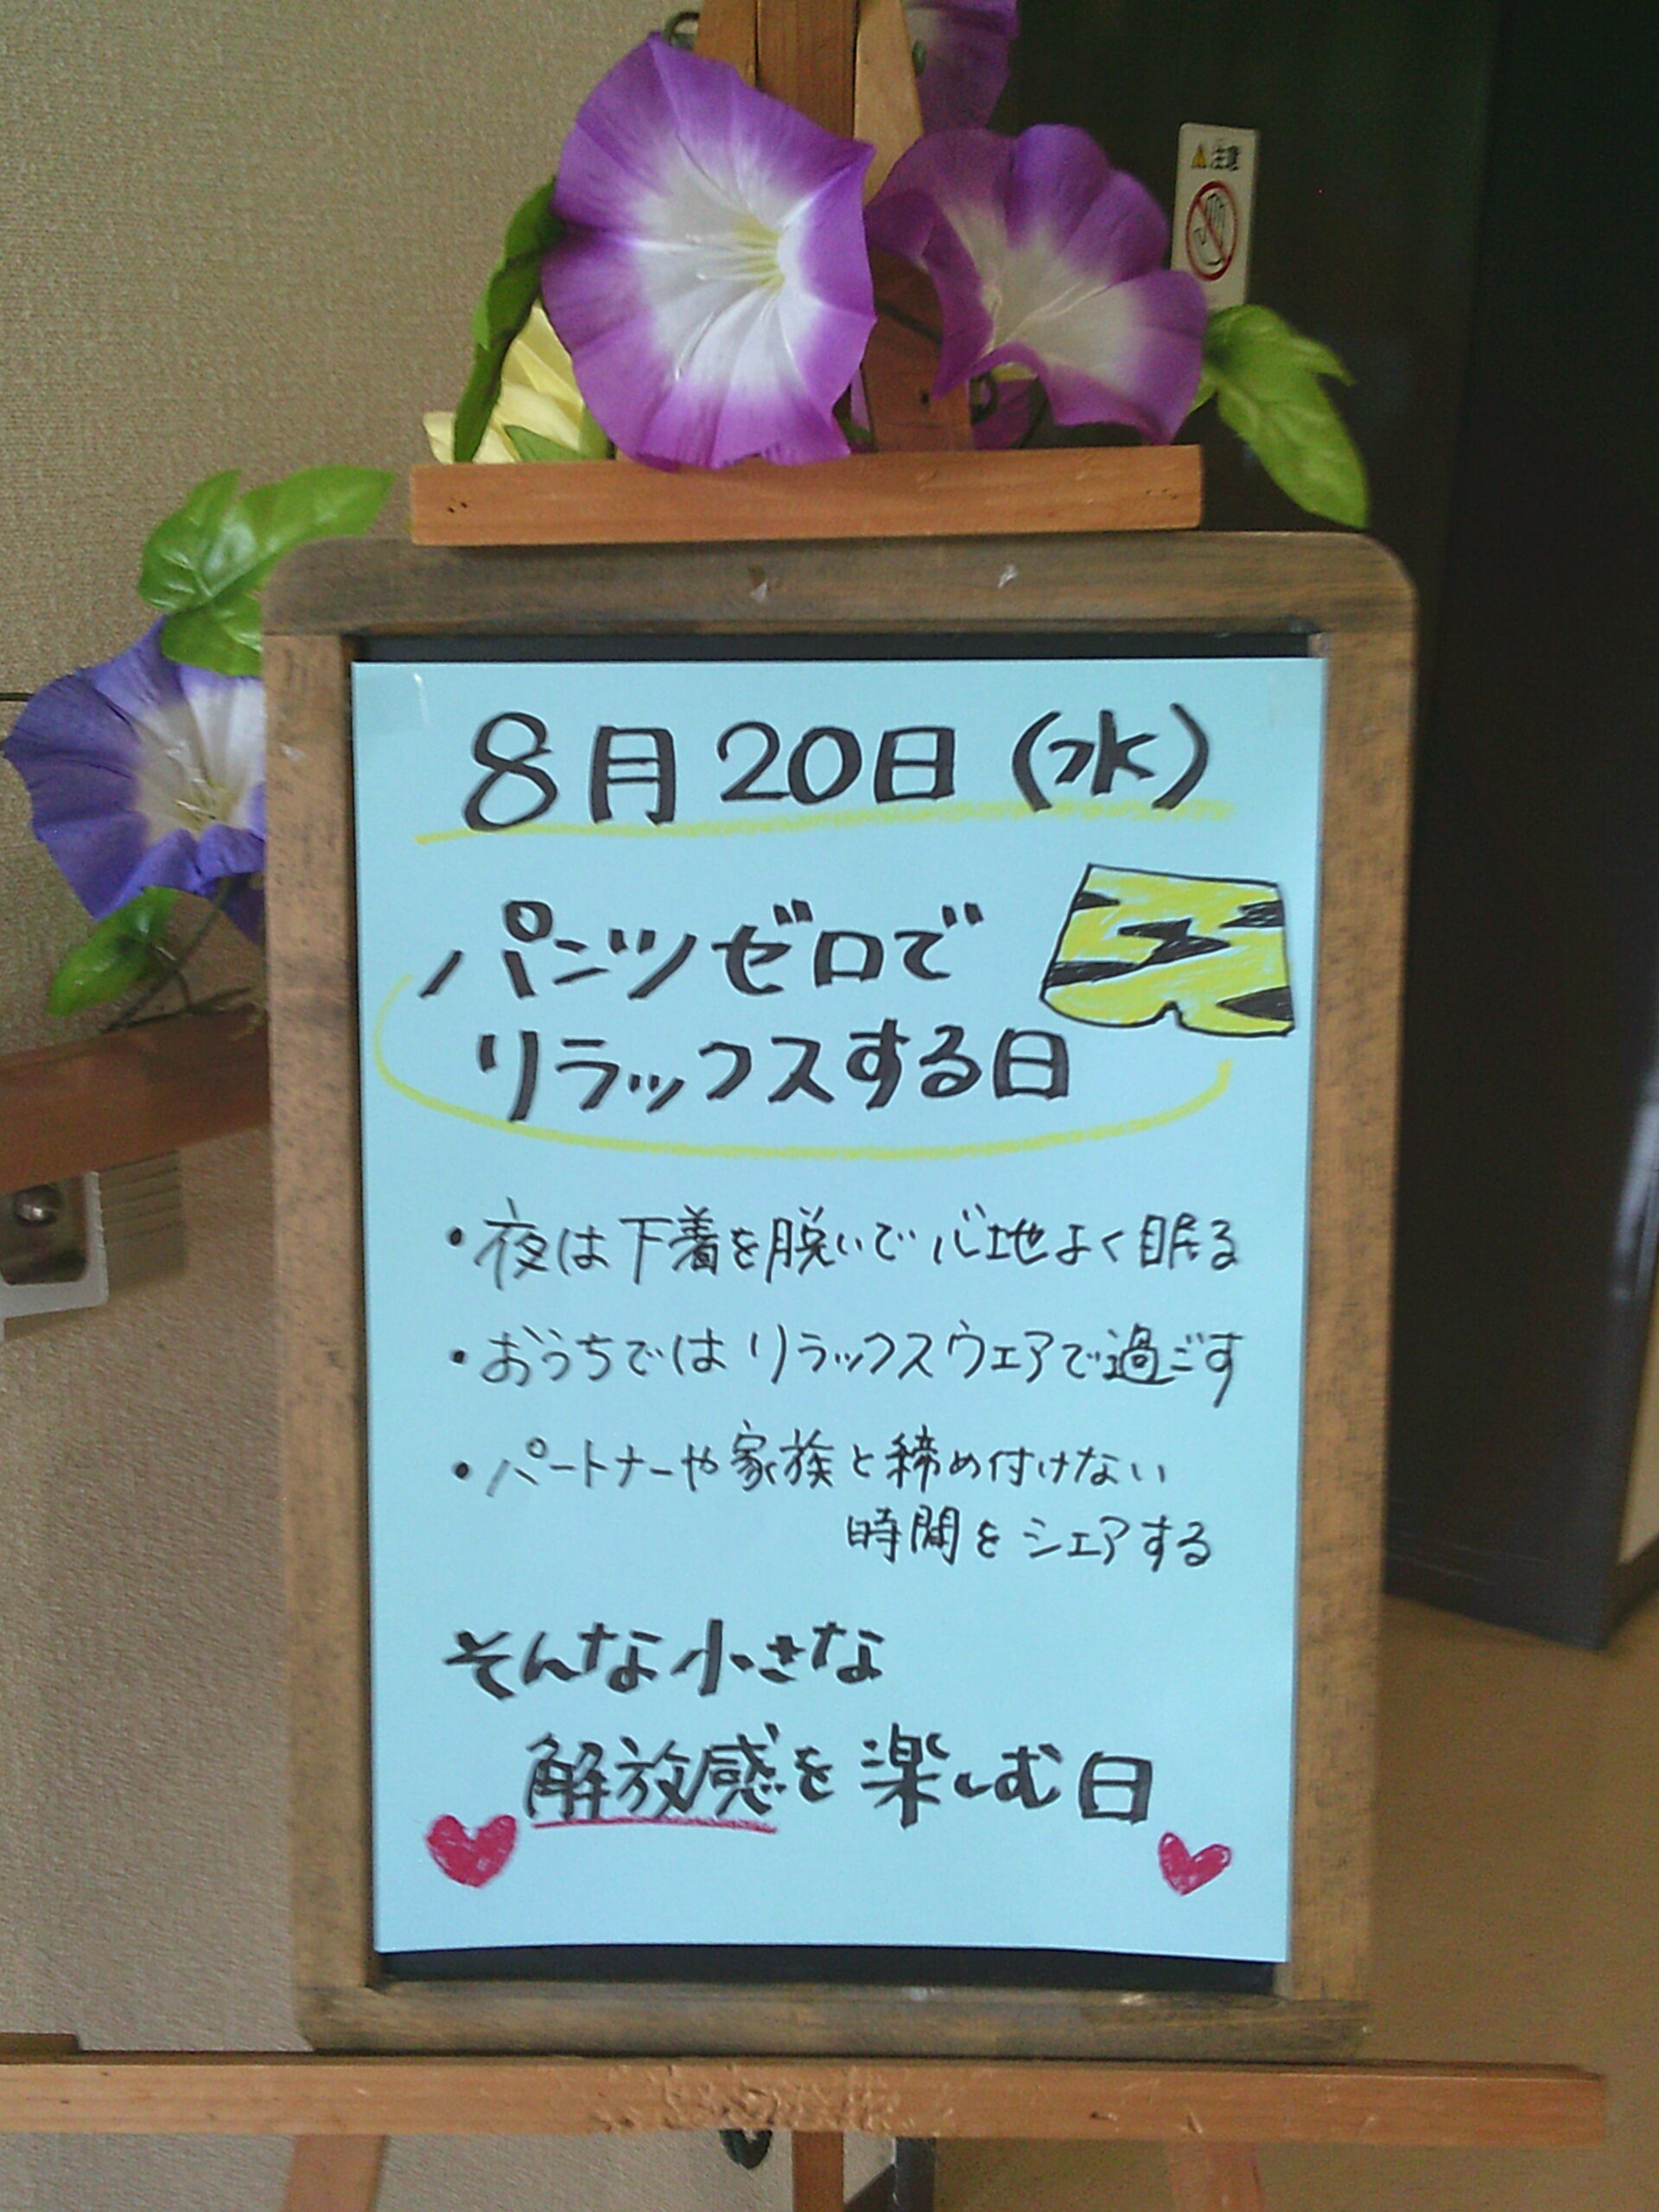 注意
8月20日(水)
パンツゼロで
リラックスする日
・夜は下着を脱いで心地よく眠る
・おうちではリラックスウェアで過ごす
・パートナーや家族と締め付けない
時間をシェアする
そんな小さな
解放感を楽しむ日